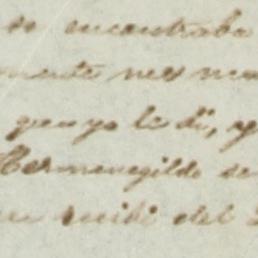 se encontraba
mente nes
que yo le di, y
Hermenegildo de
recibi del